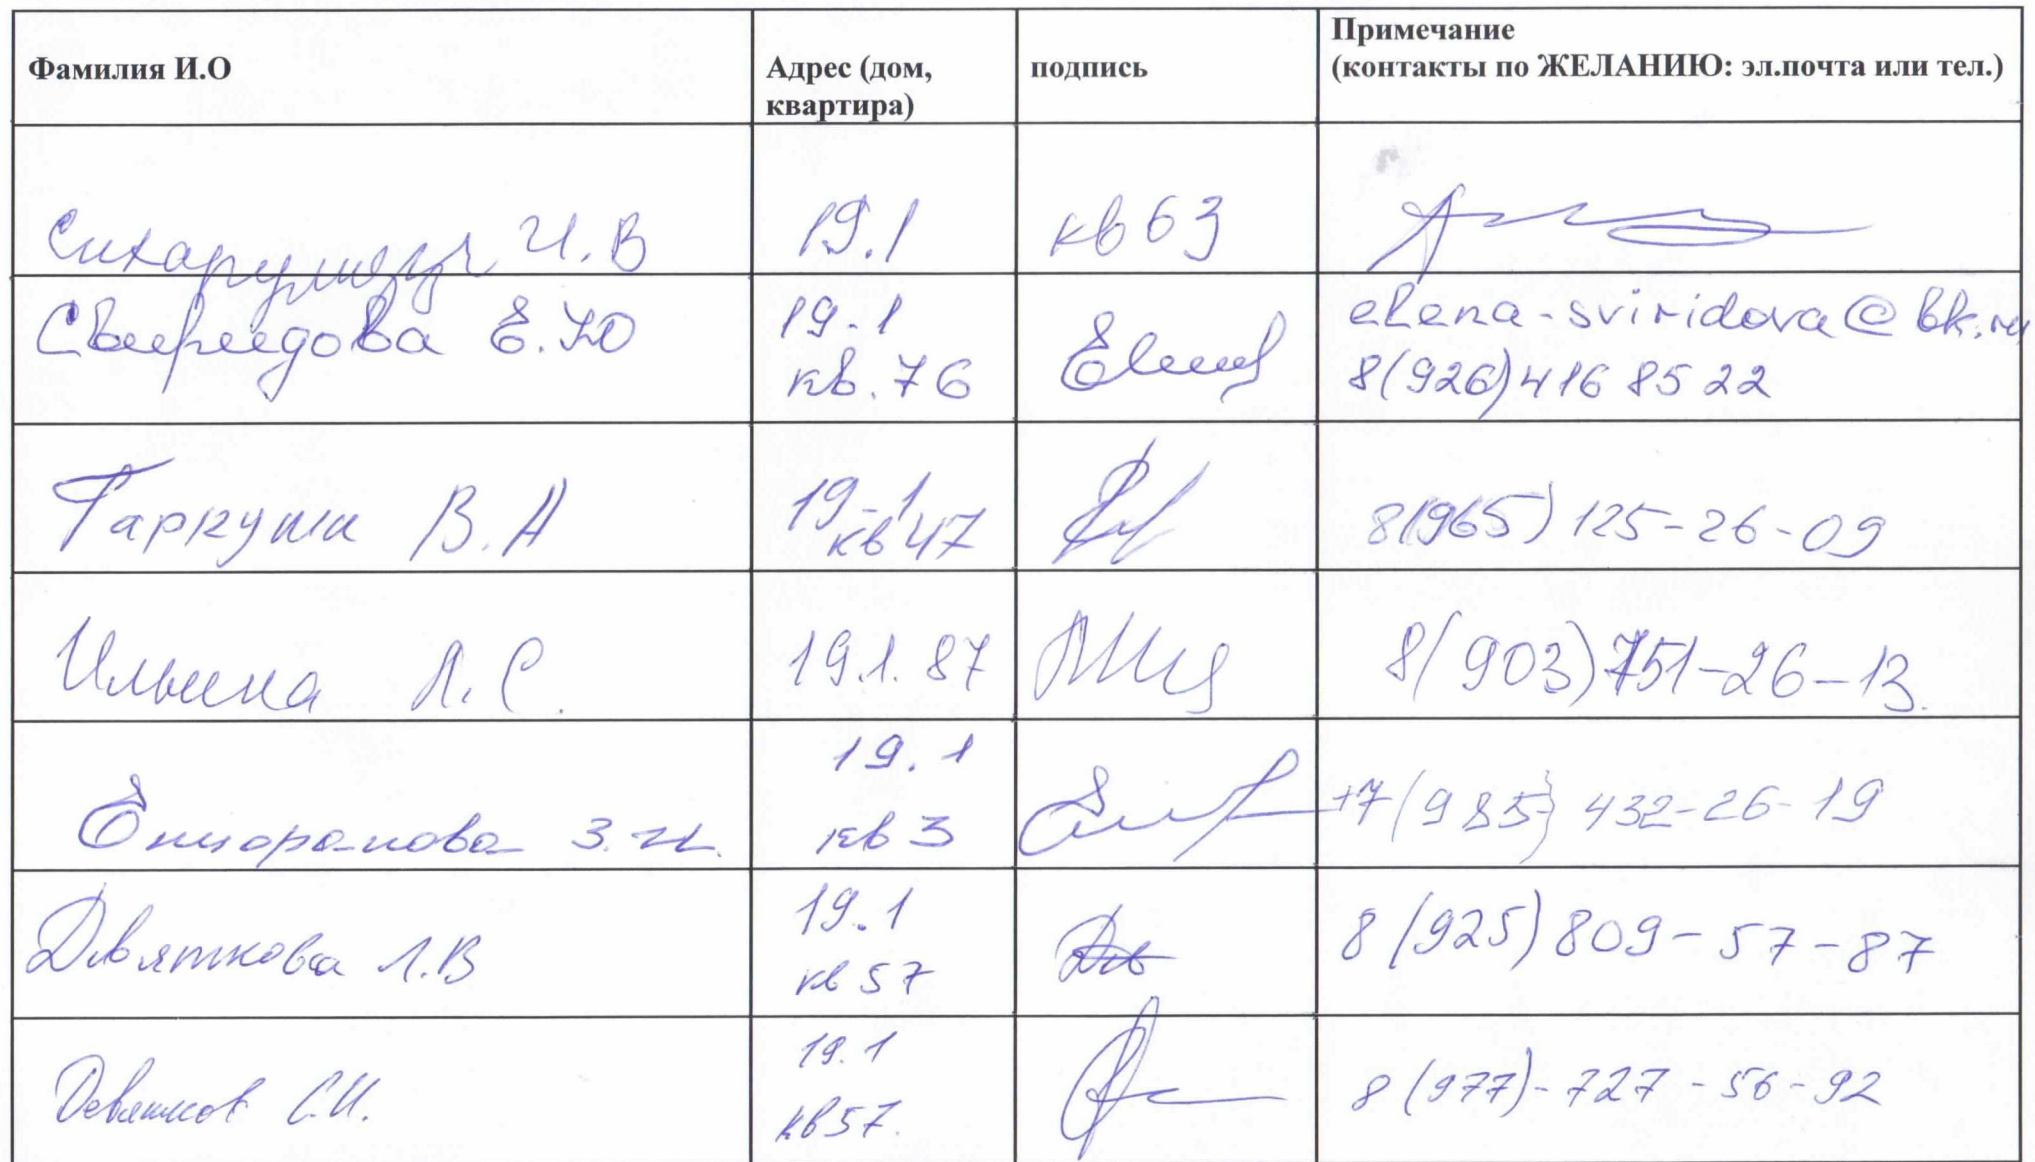 Фамилия И.О
Адрес (дом,
квартира)
подпись
Примечание
(контакты по ЖЕЛАНИЮ: эл.почта или тел.)
Сихарулидзе И.В
19.1
кв 63
Свиридова Е.Ю
19-1
кв. 76
elena-sviridova@bk.ru
8(926)416 85 22
Гаркуша В.А
19-1
кв 47
8(965) 125-26-09
Ильина Л.С.
19.1. 87
8(903)751-26-13.
З.И.
19.1
кв 3
+7(985) 432-26-19
Девяткова Л.В
19.1
кв 57
8 (925) 809-57-87
Девятков С.И.
19.1
кв 57.
8 (977)-727-56-92